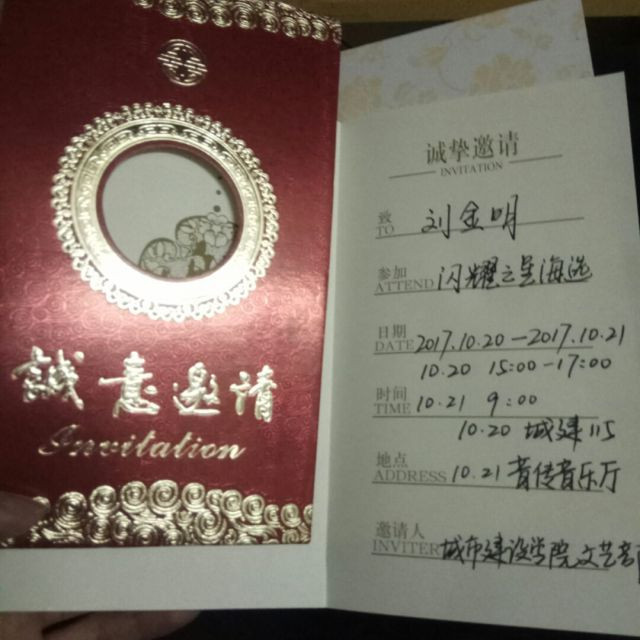 誠意邀请
Invitation
诚挚邀请
INVITATION
致 刘金明
TO
参加 闪耀之星海选
ATTEND
日期 2017.10.20—2017.10.21
DATE
10.20 15:00—17:00
时间 10.21 9:00
TIME
10.20 城建115
地点
ADDRESS 10.21 音传音乐厅
邀请人
INVITER 城市建设学院文艺